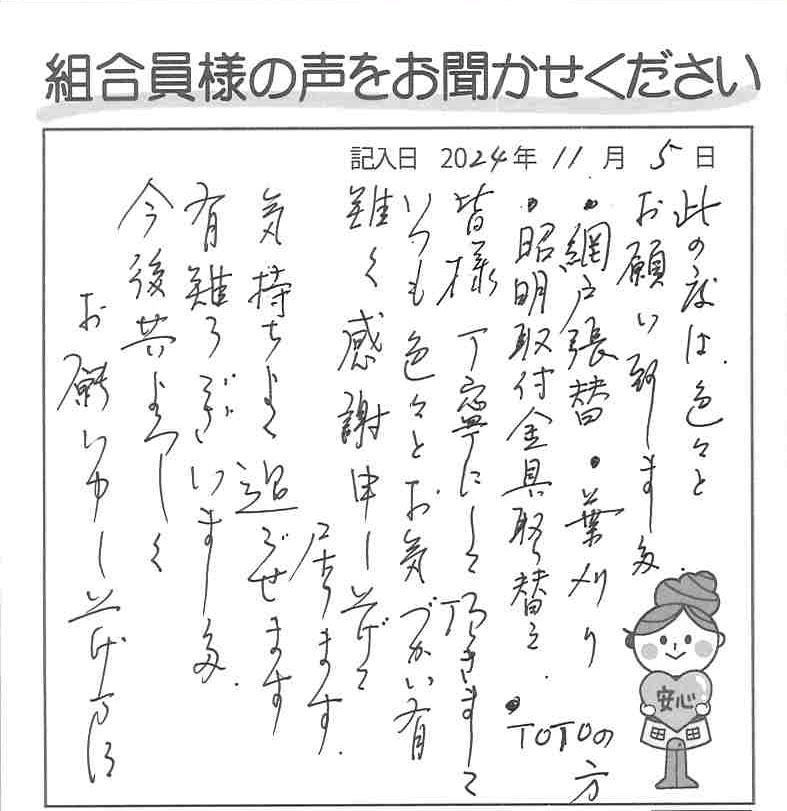 組合員様の声をお聞かせください
記入日 2024年 11月 5日
此の度は色々と
お願い致しました.
・網戸張替・葉刈り
・昭明取付金具取り替え. ・TOTOの方
皆様丁寧にして頂きまして
いつも色々とお気づかい有
難く感謝申し上げて
居ります.
気持ちよく過ごせます
有難うございました.
今後共よろしく
お願い申し上げます
安心